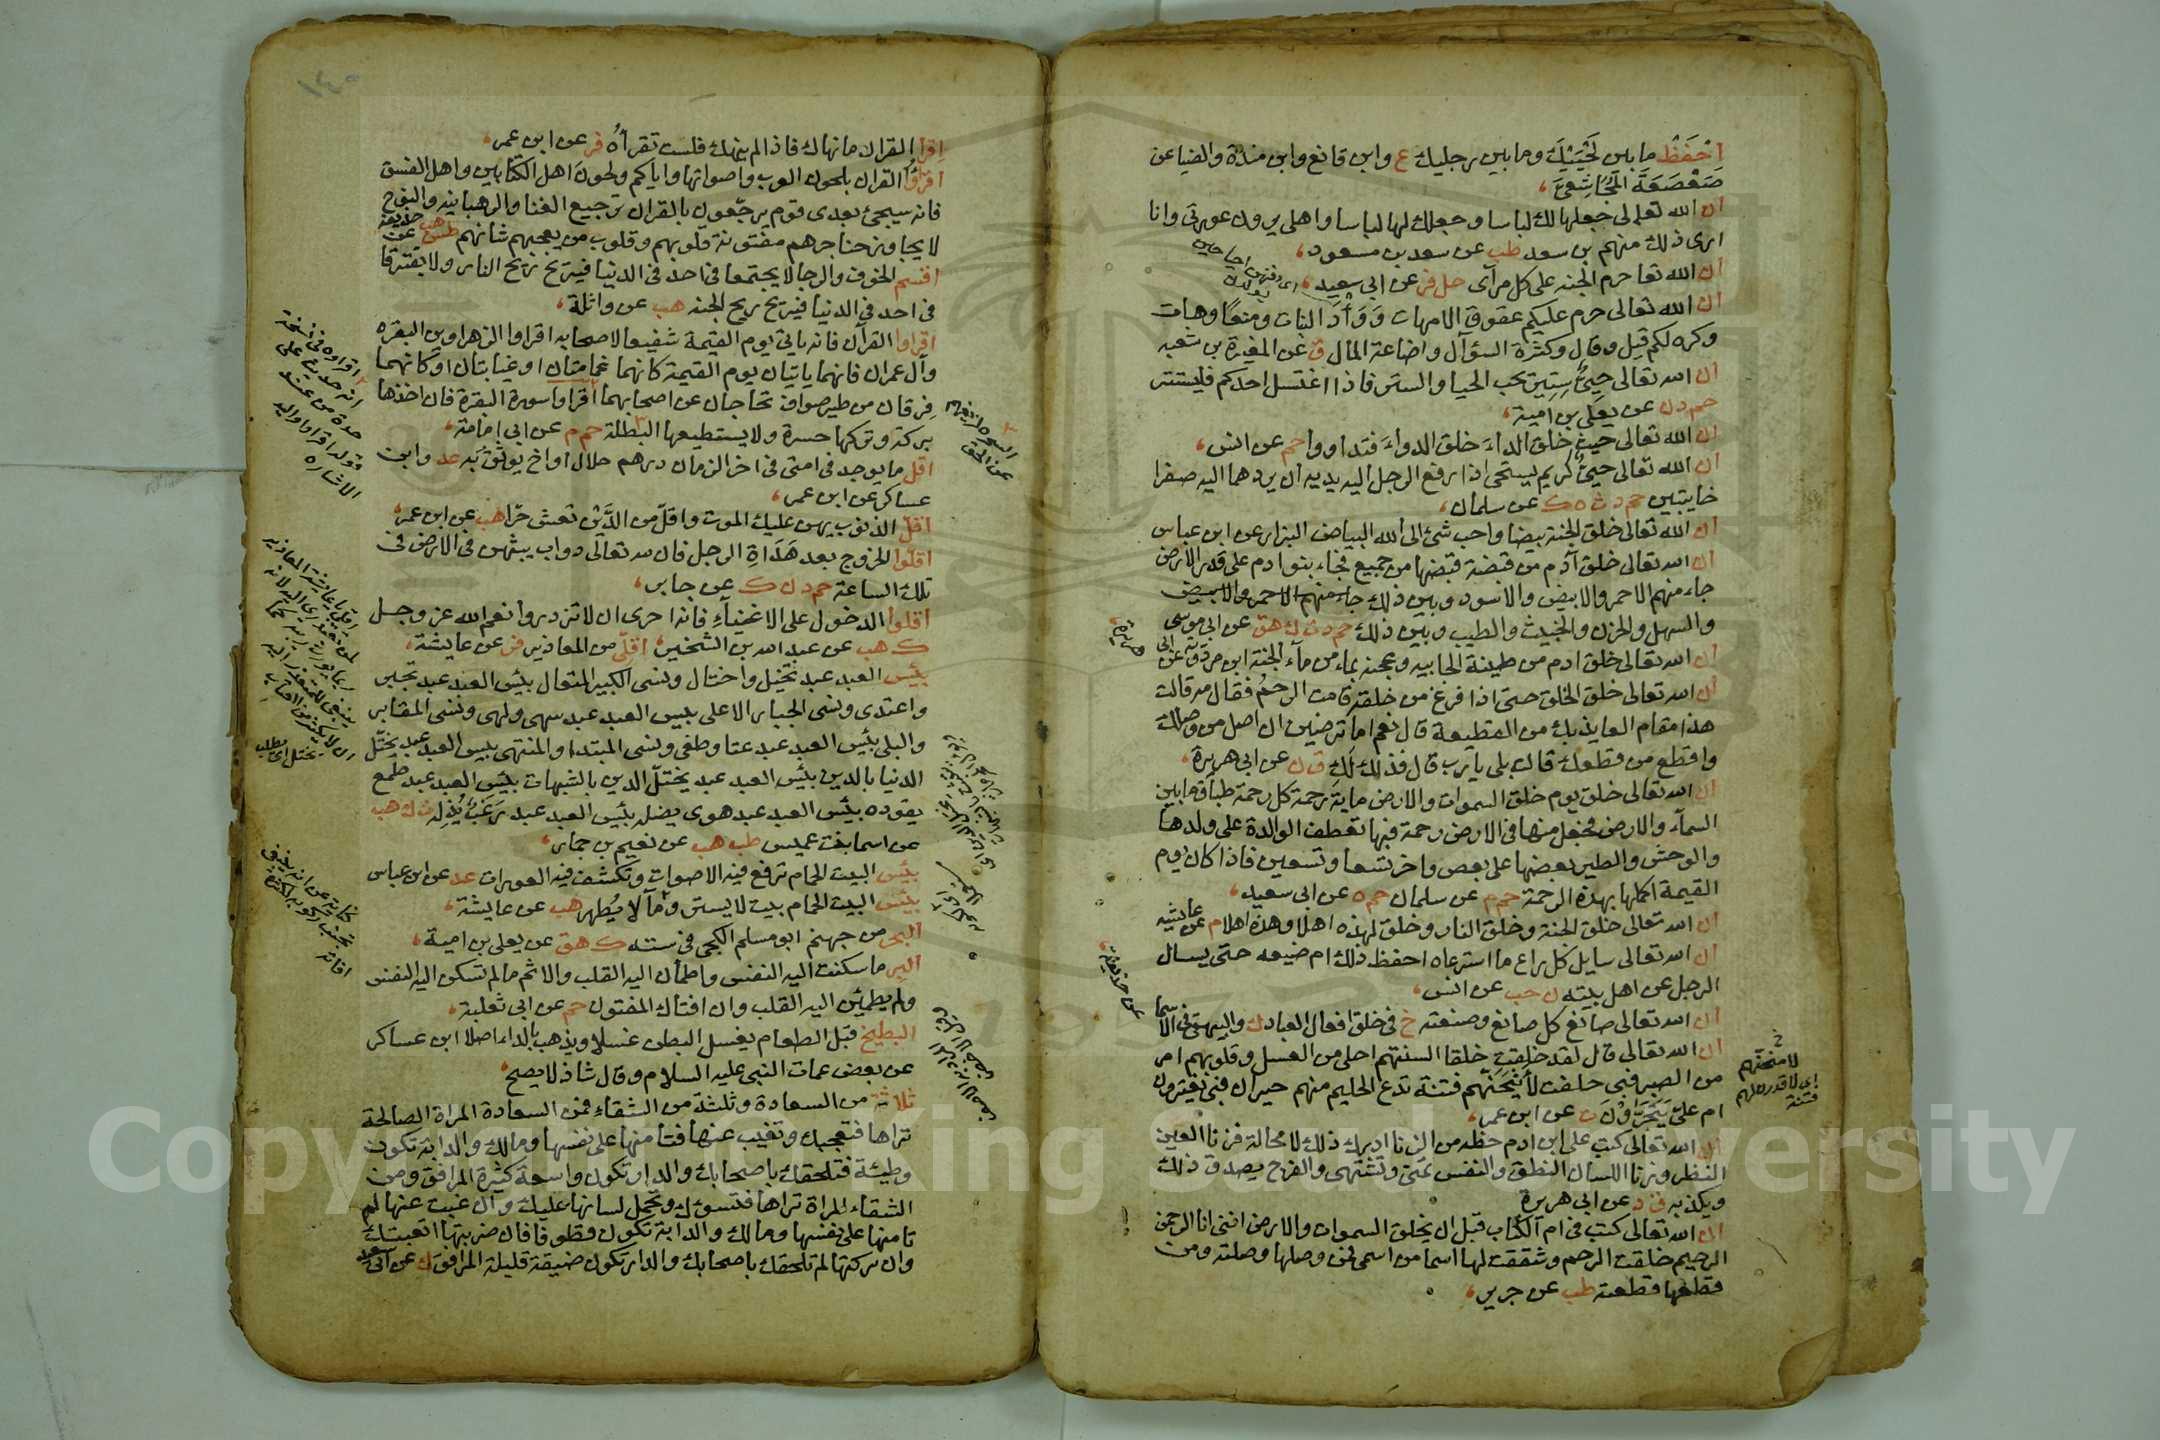 احفظ ما بين لحييك وما بين رجليك ع وابن قانع وابن مندة والضيا عن
صعصعة المجاشعي
ان الله تعالى جعلها لك لباسا وجعلك لها لباسا واهلي يرون عورتي وانا
ارى ذلك منهم بن سعد طب عن سعد بن مسعود
ان الله تعا حرم الجنه على كل مرآى حل فر عن ابي سعيد
ان الله تعالى حرم عليكم عقوق الامهات ووأد البنات ومنعا وهات
وكره لكم قيل وقال وكثرة السؤال واضاعة المال ق عن المغيرة بن شعبه
ان الله تعالى حيي ستير يحب الحيا والستر فاذا اغتسل احدكم فليستتر
حم د ن عن يعلى بن امية
ان الله تعالى حيث خلق الداء خلق الدواء فتداووا حم عن انس
ان الله تعالى حيي كريم يستحى اذا رفع الرجل اليه يديه ان يردهما اليه صفرا
خايبتين حم د ت ه ك عن سلمان
ان الله تعالى خلق الجنة بيضا واحب شئ الى الله البياض البزار عن ابن عباس
ان الله تعالى خلق آدم من قبضة قبضها من جميع فجاء بنوا دم على قدر الارض
جاء منهم الاحمر والابيض والاسود وبين ذلك جاء منهم الاحمر والابيض
والسهل والحزن والخبيث والطيب وبين ذلك حم د ت ك هق عن ابي موسى
ان الله تعالى خلق ادم من طينة الجابيه وعجنه بماء من مآء الجنة ابن مردويه عن ابي
هريرة
ان الله تعالى خلق الخلق حتى اذا فرغ من خلقه قامت الرحم فقال مه قالت
هذا مقام العايذ بك من القطيعة قال نعم اما ترضين ان اصل من وصلك
واقطع من قطعك قالت بلى يا رب قال فذلك لك ق ن عن ابي هريرة
ان الله تعالى خلق يوم خلق السموات والارض ماية رحمة كل رحمة طباق ما بين
السمآء والارض فجعل منها في الارض رحمة فبها تعطف الوالدة على ولدها
والوحش والطير بعضها على بعض واخر تسعا وتسعين فاذا كان يوم
القيمة اكملها بهذه الرحمة حم م عن سلمان حم ه عن ابي سعيد
ان الله تعالى خلق الجنة وخلق النار وخلق لهذه اهلا وهذه اهلا م عن عايشه
ان الله تعالى سايل كل راع ما استرعاه احفظ ذلك ام ضيعه حتى يسال
الرجل عن اهل بيته ن حب عن انس
ان الله تعالى صانع كل صانع وصنعته خ في خلق افعال العباد ك والبيهقي في الاسما
عن حذيفة
ان الله تعالى قال لقد خلقت خلقا السنتهم احلى من العسل وقلوبهم امر
من الصبر فبي حلفت لأتيحنهم فتنة تدع الحليم منهم حيران فبي يغترون
ام علي يجترؤن ت عن ابن عمر
لامنحنهم
اي لاقدرن لهم
فتنة
ان الله تعالى كتب على ابن ادم حظه من الزنا ادرك ذلك لا محالة فزنا العين
النظر وزنا اللسان النطق والنفس تمنى وتشتهى والفرج يصدق ذلك
ويكذبه ق د عن ابي هريرة
ان الله تعالى كتب في ام الكتاب قبل ان يخلق السموات والارض انني انا الرحمن
الرحيم خلقت الرحم وشققت لها اسما من اسمي فمن وصلها وصلته ومن
قطعها قطعته طب عن جرير
١٤٥
اقرأ القران ما نهاك فاذا لم ينهك فلست تقرأه فر عن ابن عمر
اقرؤا القران بلحون العرب واصواتها واياكم ولحون اهل الكتابين واهل الفسق
فانه سيجئ بعدى قوم يرجعون بالقران ترجيع الغنا والرهبانيه والنوح
لا يجاوز حناجرهم مفتونة قلوبهم وقلوب من يعجبهم شانهم طس هب عن حذيفه
اقسم الخوف والرجا لا يجتمعا في احد في الدنيا فيريح ريح النار ولا يفترقا
في احد في الدنيا فيريح ريح الجنه هب عن واثلة
اقراوا القرآن فانه ياتي يوم القيمة شفيعا لاصحابه اقراوا الزهراوين البقره
وآل عمران فانهما ياتيان يوم القيمة كانهما غمامتان او غيابتان او كانهما
فرقان من طير صواف تحاجان عن اصحابهما اقراوا سورة البقرة فان اخذها
بركة وتركها حسرة ولا يستطيعها البطلة حم م عن ابي امامة
اقل ما يوجد في امتي في اخر الزمان درهم حلال او اخ يوثق به عد وابن
عساكر عن ابن عمر
اقل الذنوب يهن عليك الموت واقل من الدين تعش حرا هب عن ابن عمر
اقلوا الخروج بعد هداة الرجل فان لله تعالى دواب يبثهن في الارض في
تلك الساعة حم د ن ك عن جابر
اقلوا الدخول على الاغنياء فانه احرى ان لا تزدروا نعم الله عز وجل
ك هب عن عبد الله بن الشخير اقلى من المعاذير فر عن عايشة
بئس العبد عبد تخيل واختال ونسى الكبير المتعال بئس العبد عبد تجبر
واعتدى ونسى الجبار الاعلى بيس العبد عبد سهى ولهى ونسى المقابر
والبلى بئس العبد عبد عتا وطغى ونسى المبتدا والمنتهى بيس العبد عبد يختل
الدنيا بالدين بئس العبد عبد يختل الدين بالشبهات بئس العبد عبد طمع
يقوده بئس العبد عبد هوى يضله بئس العبد عبد رغب يذله ت ك هب
عن اسما بنت عميس طب هب عن نعيم بن حمار
بئس البيت الحمام ترفع فيه الاصوات وتكشف فيه العورات عد عن ابن عباس
بئس البيت الحمام بيت لا يستر وماء لا يطهر هب عن عايشة
البحر من جهنم ابو مسلم الكجى في سننه ك هق عن يعلى بن امية
البر ما سكنت اليه النفس واطمأن اليه القلب والاثم ما لم تسكن اليه النفس
ولم يطمئن اليه القلب وان افتاك المفتون حم عن ابي ثعلبة
البطيخ قبل الطعام يغسل البطن غسلا ويذهب بالداء اصلا ابن عساكر
عن بعض عمات النبي عليه السلام وقال شاذ لا يصح
ثلاثة من السعادة وثلثة من الشقاء فمن السعادة المراة الصالحة
تراها فتعجبك وتغيب عنها فتامنها على نفسها ومالك والدابة تكون
وطيئة فتلحقك باصحابك والدار تكون واسعة كثيرة المرافق ومن
الشقاء المراة تراها فتسؤك وتحمل لسانها عليك وان غبت عنها لم
تامنها على نفسها ومالك والدابة تكون قطوفا فان ضربتها اتعبتك
وان تركتها لم تلحقك باصحابك والدار تكون ضيقة قليلة المرافق ك عن سعد
Copyright © King Saud University